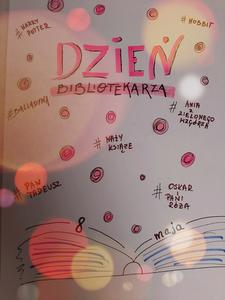 #HARRY
POTTER
#HOBBIT
DZIEŃ
BIBLIOTEKARZA
#BALLADYNA
#ANIA
Z
ZIELONEGO
WZGÓRZA
#MAŁY
KSIĄŻE
#PAN
TADEUSZ
#OSKAR
I
PANI
RÓŻA
8 maja